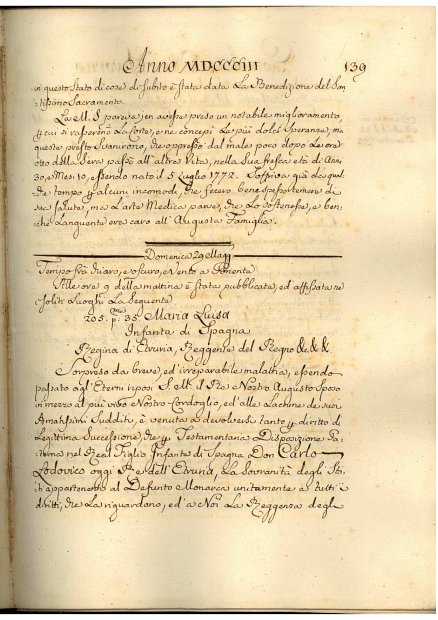 Anno MDCCCIII 139
in questo stato di cose di subito è stata data La Benedizione del San
tissimo Sacramento.
La M. S. pareva, en avesse preso un notabile miglioramento,
p cui si rasserenò La Corte, e ne concepì Le più dolci Speranze, ma
queste presto svanirono, che oppresso dal male poco dopo Le ore
otto della Sera passò all' altra Vita, nella Sua fresca età di Anni
30, Mesi 10, essendo nato il 5 Luglio 1772. Soffriva già da qual
che tempo alcuni incomodi, che fecero bene spesso temere di
sua salute, ma L'arte Medica parve, che Lo sostenesse, e ben
che Languente era caro all' Augusta Famiglia.
Domenica 29 Magg
Tempo fra chiaro, e oscuro, e Vento a Ponente
Alle ore 9 della mattina è stata pubblicata, ed affissata ne
soliti Luoghi La Seguente
205. p. 35. Maria Luisa
Infanta di Spagna
Regina di Etruria, Reggente del Regno &c. &c. &c.
Sorpreso da breve, ed' irreparabile malattia, essendo
passato agl' Eterni riposi S. M. il Re Nostro Augusto Sposo
in mezzo al più vivo Nostro Cordoglio, ed' alle Lacrime de suoi
Amatissimi Sudditi, è venuta a devolversi tanto p diritto di
Legittima Successione, che p Testamentaria Disposizione Pa-
terna nel Real Figlio Infante di Spagna Don Carlo
Lodovico oggi Re dell' Etruria, La Sovranità degli Sta-
ti appartenente al Defunto Monarca unitamente a tutti i
diritti, che La riguardano, ed' a Noi La Reggenza degli